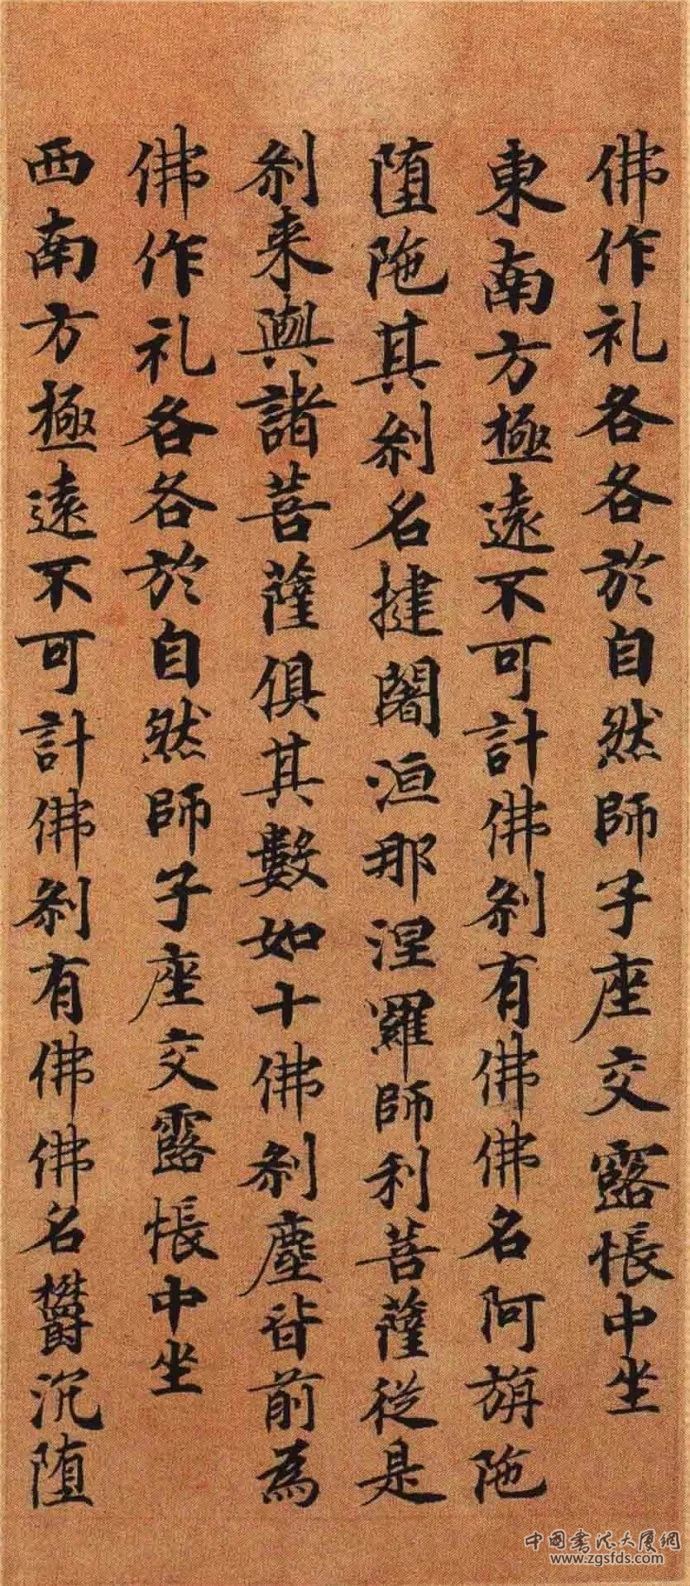 佛作礼各各於自然師子座交露帳中坐
東南方極遠不可計佛刹有佛佛名阿旃陁
堕陁其刹名揵闍洹那涅羅師利菩薩從是
刹来與諸菩薩俱其數如十佛刹塵皆前為
佛作礼各各於自然師子座交露帳中坐
西南方極遠不可計佛刹有佛佛名欝沉堕
中国书法大厦網
www.zgsfds.com